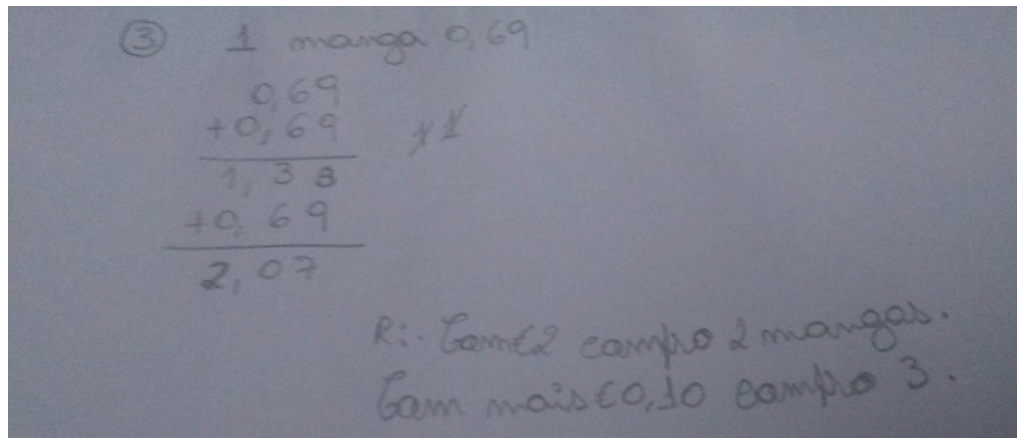 ③ 1 manga 0,69
0,69
+0,69
1,38
+0,69
2,07
R:. Com €2 compro 2 mangas.
Com mais €0,10 compro 3.